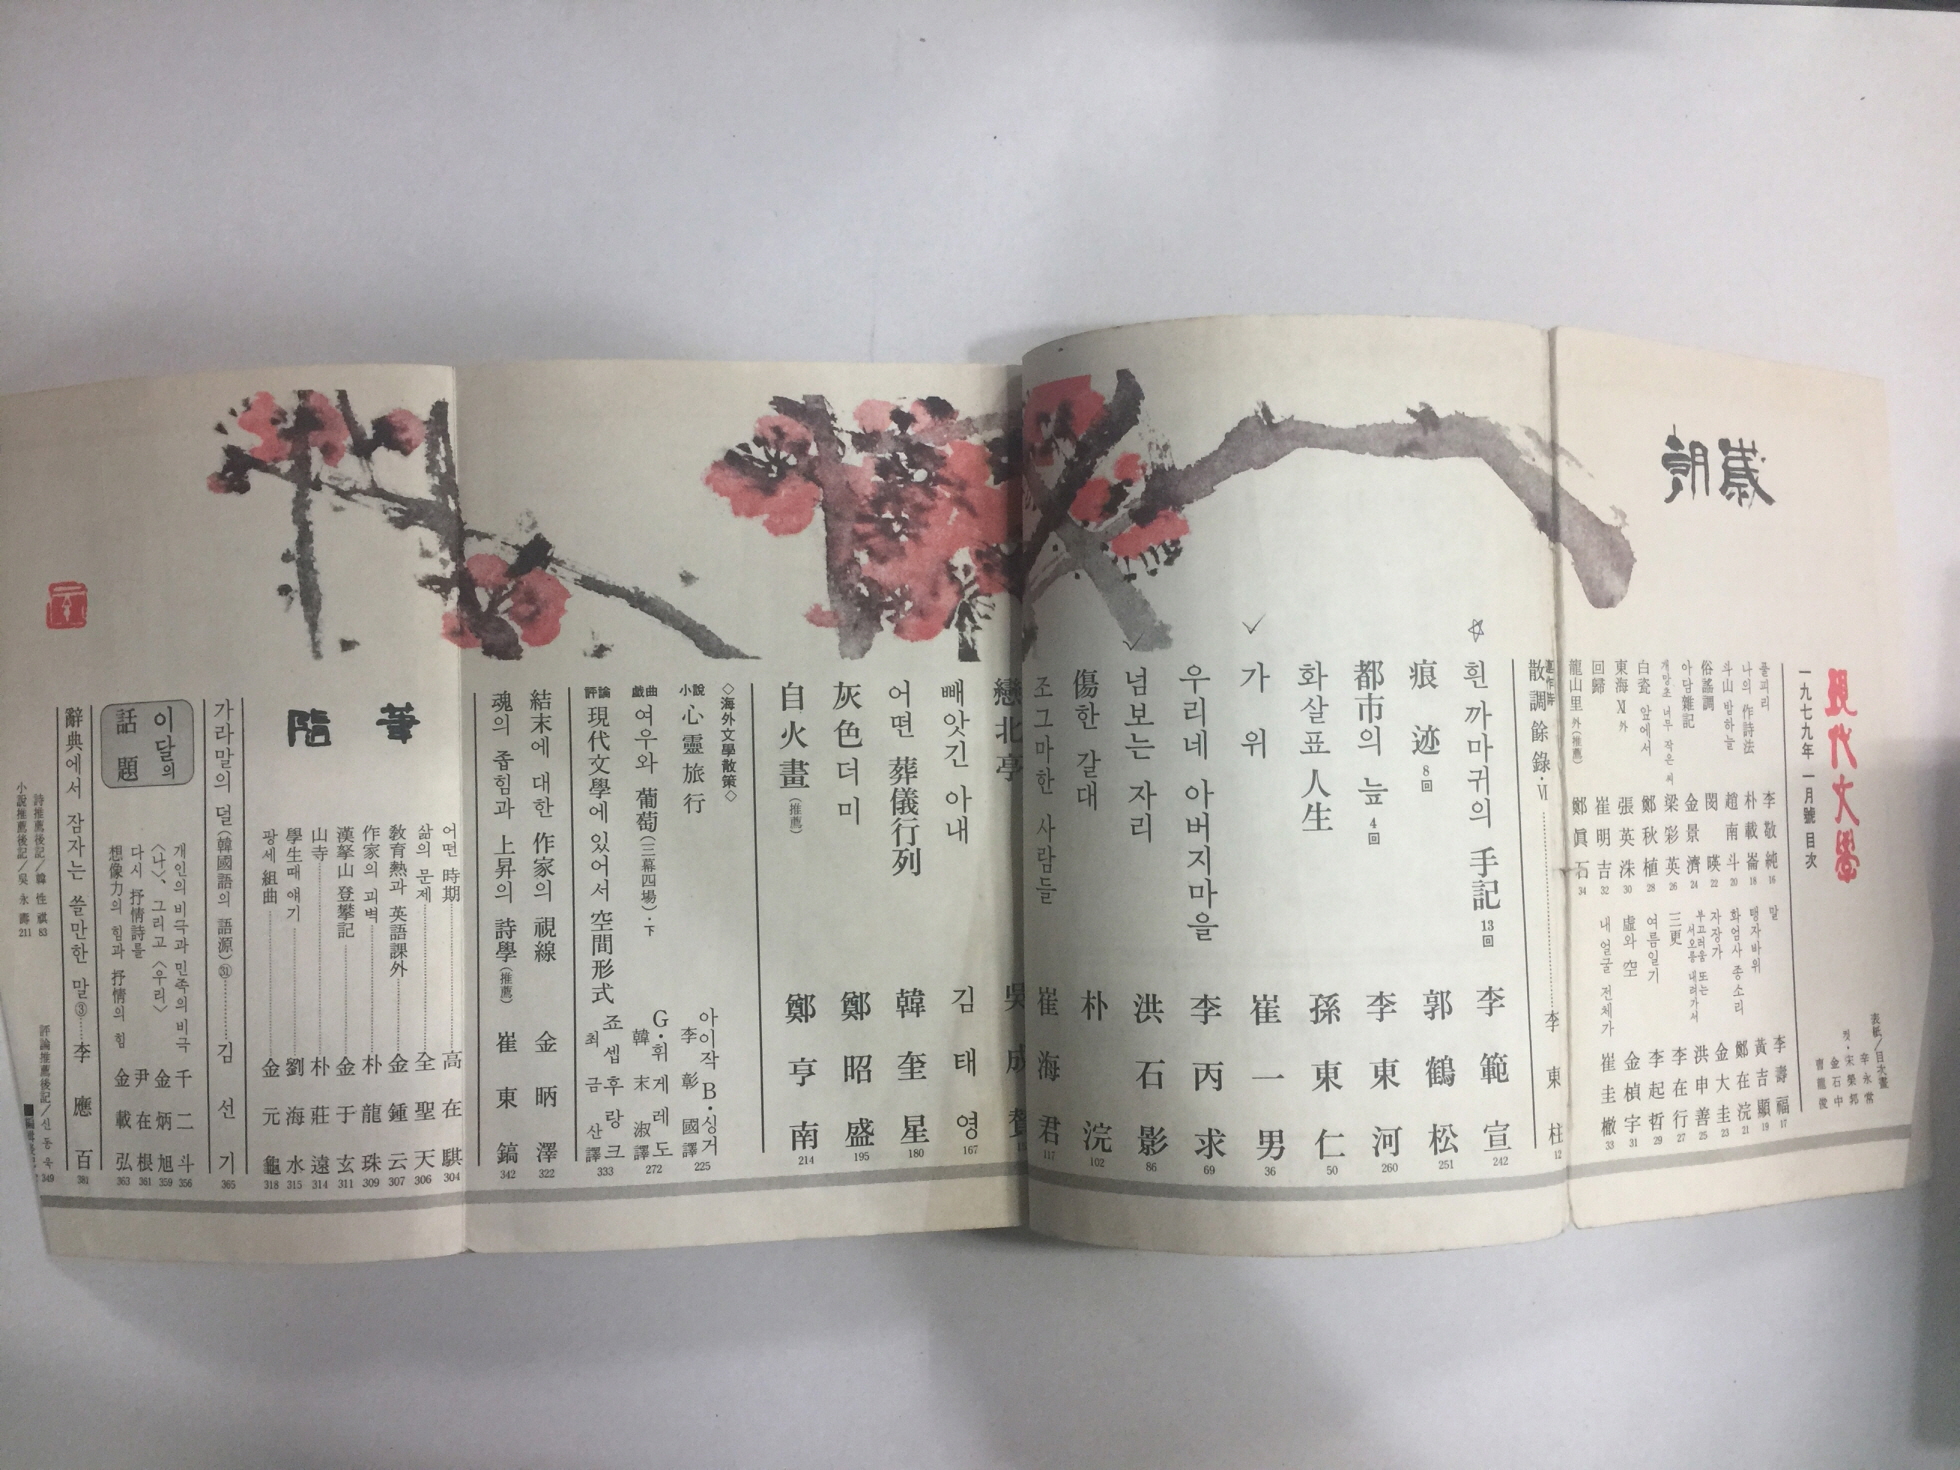 現代文學
一九七九年 一月號 目次
表紙／目次畫 辛永常
컷・宋榮邦
金石中
曺龍俊
歲朝
풀피리 李敬純 16
나의 作詩法 朴載崙 18
斗山 밤하늘 趙南斗 20
俗謠調 閔暎 22
아담雜記 金景濟 24
개망초 너무 작은 씨 梁彩英 26
白瓷 앞에서 鄭秋植 28
東海 Ⅵ 外 張英洙 30
回歸 崔明吉 32
龍山里 外(推薦) 鄭眞石 34
말 李壽福 17
탱자바위 黃吉顯 19
화엄사 종소리 鄭在浣 21
자장가 金大圭 23
부끄러움 또는 서오릉 내려가서 洪申善 25
三更 李在行 27
여름일기 李起哲 29
虛와 空 金楨宇 31
내 얼굴 전체가 崔圭檄 33
連作詩
散調餘錄・Ⅵ 李東柱 12
흰 까마귀의 手記 13回 李範宣 242
痕迹 8回 郭鶴松 251
都市의 늪 4回 李東河 260
화살표 人生 孫東仁 50
가위 崔一男 36
우리네 아버지마을 李丙求 69
넘보는 자리 洪石影 86
傷한 갈대 朴浣 102
조그마한 사람들 崔海君 117
戀北亭 吳成贊
빼앗긴 아내 김태영 167
어떤 葬儀行列 韓奎星 180
灰色더미 鄭昭盛 195
自火畫(推薦) 鄭亨南 214
◇海外文學散策◇
小說 心靈旅行 아이작 B・싱거 李彰國譯 225
戱曲 여우와 葡萄(三幕四場)・下 G・휘게레도 韓末淑譯 272
評論 現代文學에 있어서 空間形式 죠셉 후랑크 최금산譯 333
結末에 대한 作家의 視線 金昞澤 322
魂의 줌힘과 上昇의 詩學(推薦) 崔東鎬 342
隨筆
어떤 時期 高在騏 304
삶의 문제 全聖天 306
敎育熱과 英語課外 金鍾云 307
作家의 괴벽 朴龍珠 309
漢拏山 登攀記 金于玄 311
山寺 朴莊遠 314
學生때 얘기 劉海水 315
광세 組曲 金元龜 318
가라말의 덜(韓國語의 語源)51 김선기 365
이달의 話題
개인의 비극과 민족의 비극 千二斗 356
〈나〉、그리고 〈우리〉 金炳旭 359
다시 抒情詩를 尹在根 361
想像力의 힘과 抒情의 힘 金載弘 363
辭典에서 잠자는 쓸만한 말③ 李應百 381
詩推薦後記／韓性祺 83
小說推薦後記／吳永壽 211
評論推薦後記／신동욱 349